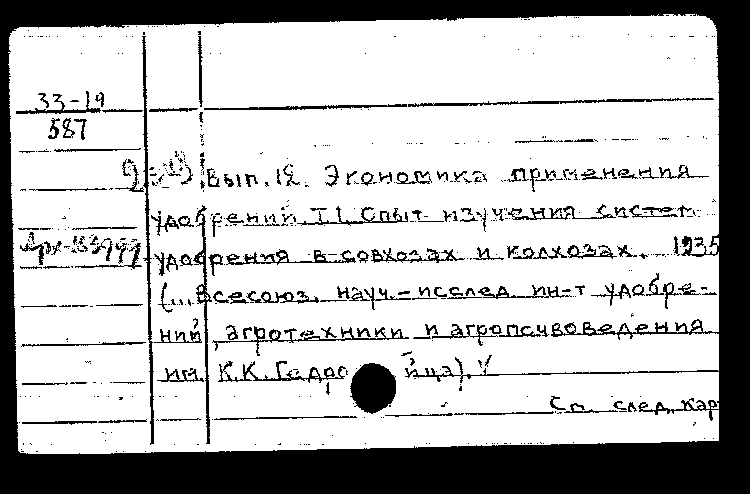 33-19
587
Вып. 12. Экономика применения
удобрений. Т1. Опыт изучения систем
удобрения в совхозах и колхозах. 1935
(...Всесоюз. науч.-исслед. ин-т удобре-
ний, агротехники и агропочвоведения
им. К.К. Гедройца).
См. след. кар